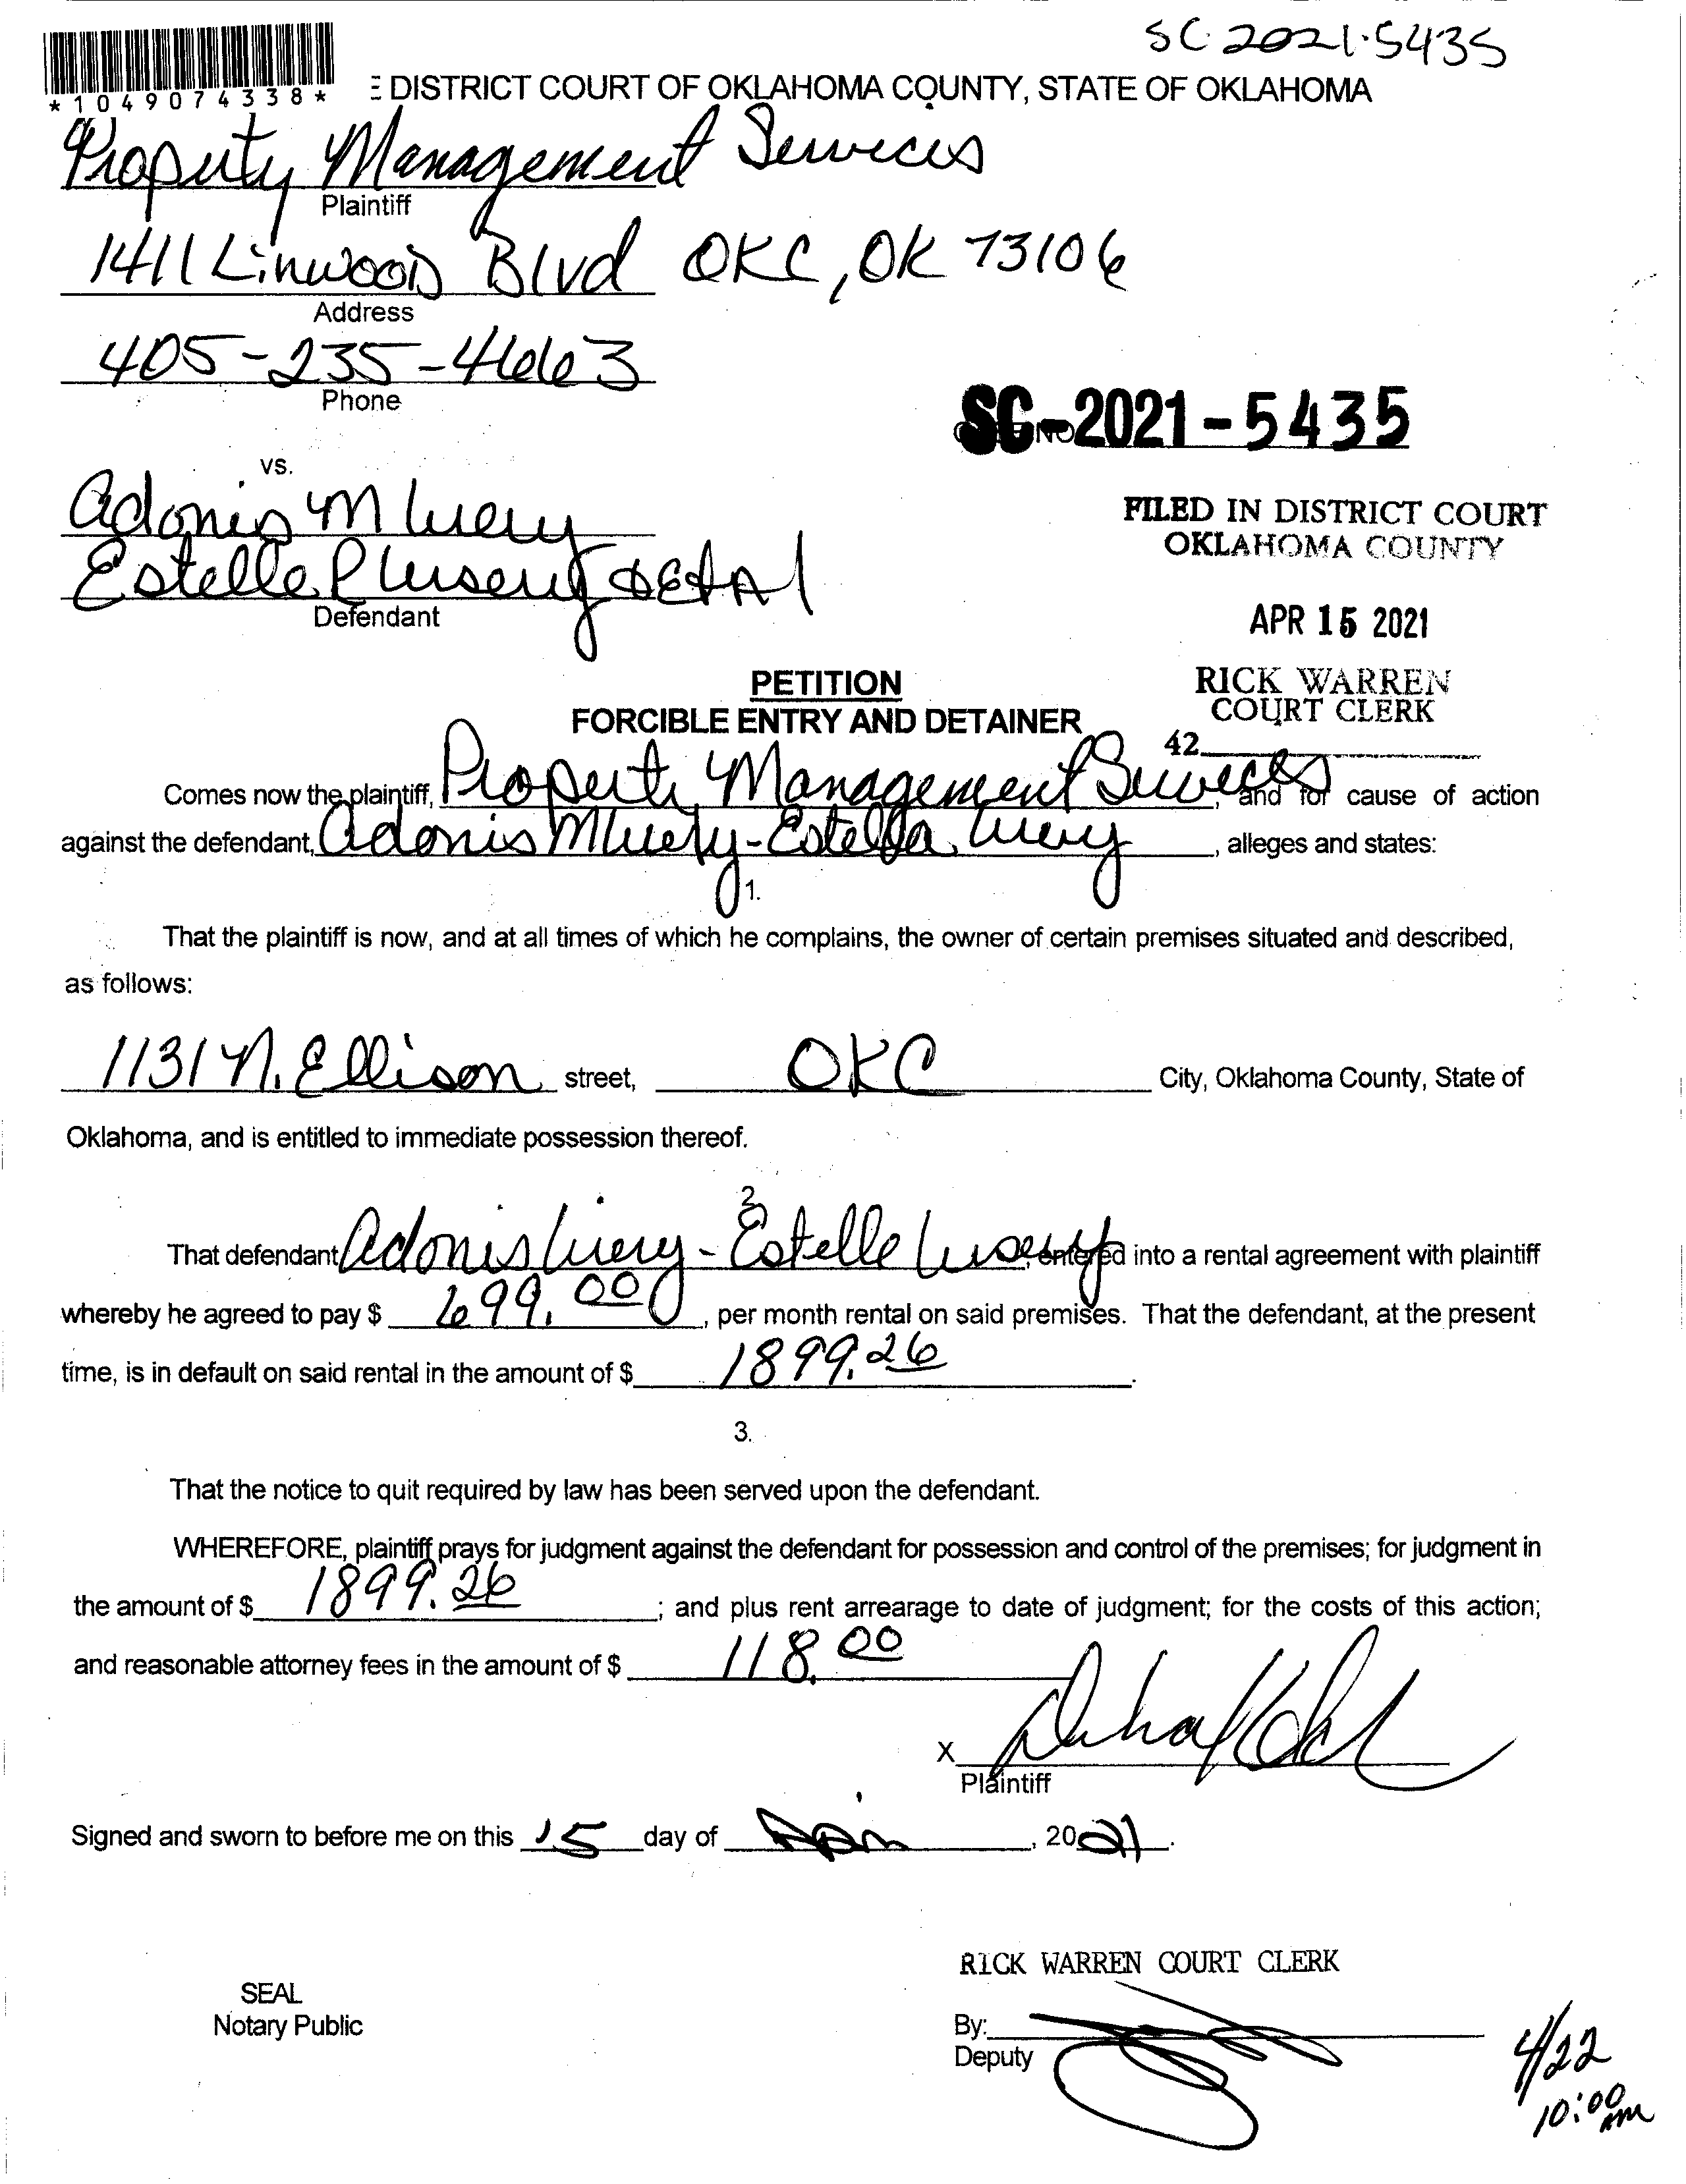 SC 2021-5435
*1049074338*
E DISTRICT COURT OF OKLAHOMA COUNTY, STATE OF OKLAHOMA
Property Management Services
Plaintiff
1411 Linwood Blvd OKC, OK 73106
Address
405-235-4663
Phone
SC-2021-5435
vs.
Adonis M
Estelle P & Et Al
Defendant
FILED IN DISTRICT COURT
OKLAHOMA COUNTY
APR 15 2021
RICK WARREN
COURT CLERK
42
PETITION
FORCIBLE ENTRY AND DETAINER
Comes now the plaintiff, Property Management Services, and for cause of action
against the defendant, Adonis M - Estella, alleges and states:
1.
That the plaintiff is now, and at all times of which he complains, the owner of certain premises situated and described,
as follows:
1131 N. Ellison street, OKC City, Oklahoma County, State of
Oklahoma, and is entitled to immediate possession thereof.
2.
That defendant Adonis - Estelle, entered into a rental agreement with plaintiff
whereby he agreed to pay $ 699.00, per month rental on said premises. That the defendant, at the present
time, is in default on said rental in the amount of $ 1899.26.
3.
That the notice to quit required by law has been served upon the defendant.
WHEREFORE, plaintiff prays for judgment against the defendant for possession and control of the premises; for judgment in
the amount of $ 1899.26; and plus rent arrearage to date of judgment; for the costs of this action;
and reasonable attorney fees in the amount of $ 118.00
X
Plaintiff
Signed and sworn to before me on this 15 day of, 2021.
RICK WARREN COURT CLERK
SEAL
Notary Public
By:
Deputy
4/22
10:00 AM